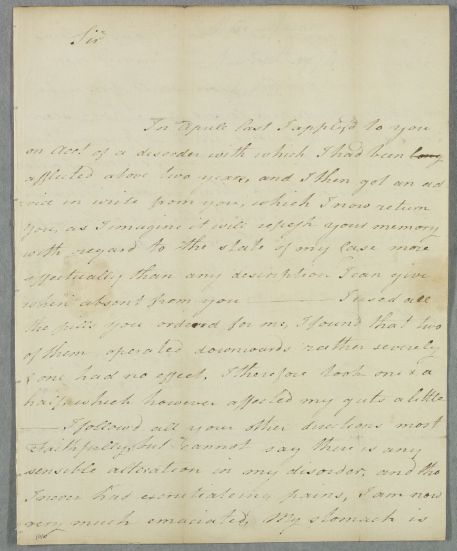 Sir
In Aprile last I apply'd to you
on Acct. of a disorder with which I had been long
affected above two years, and I then got an ad
vice in write from you, which I now return
you, as I imagine it will refresh your memory
with regard to the state of my Case more
effectually than any description I can give
when absent from you — I used all
the pills you ordered for me, I found that two
of them operated downwards rather severely
& one had no effect. I therefore took one & a
half, which however affected my guts a little
— I follow'd all your other directions most
Faithfully, but cannot say there is any
sensible alteration in my disorder, and tho
I never had excruciateing pains, I am now
very much emaciated, My stomach is